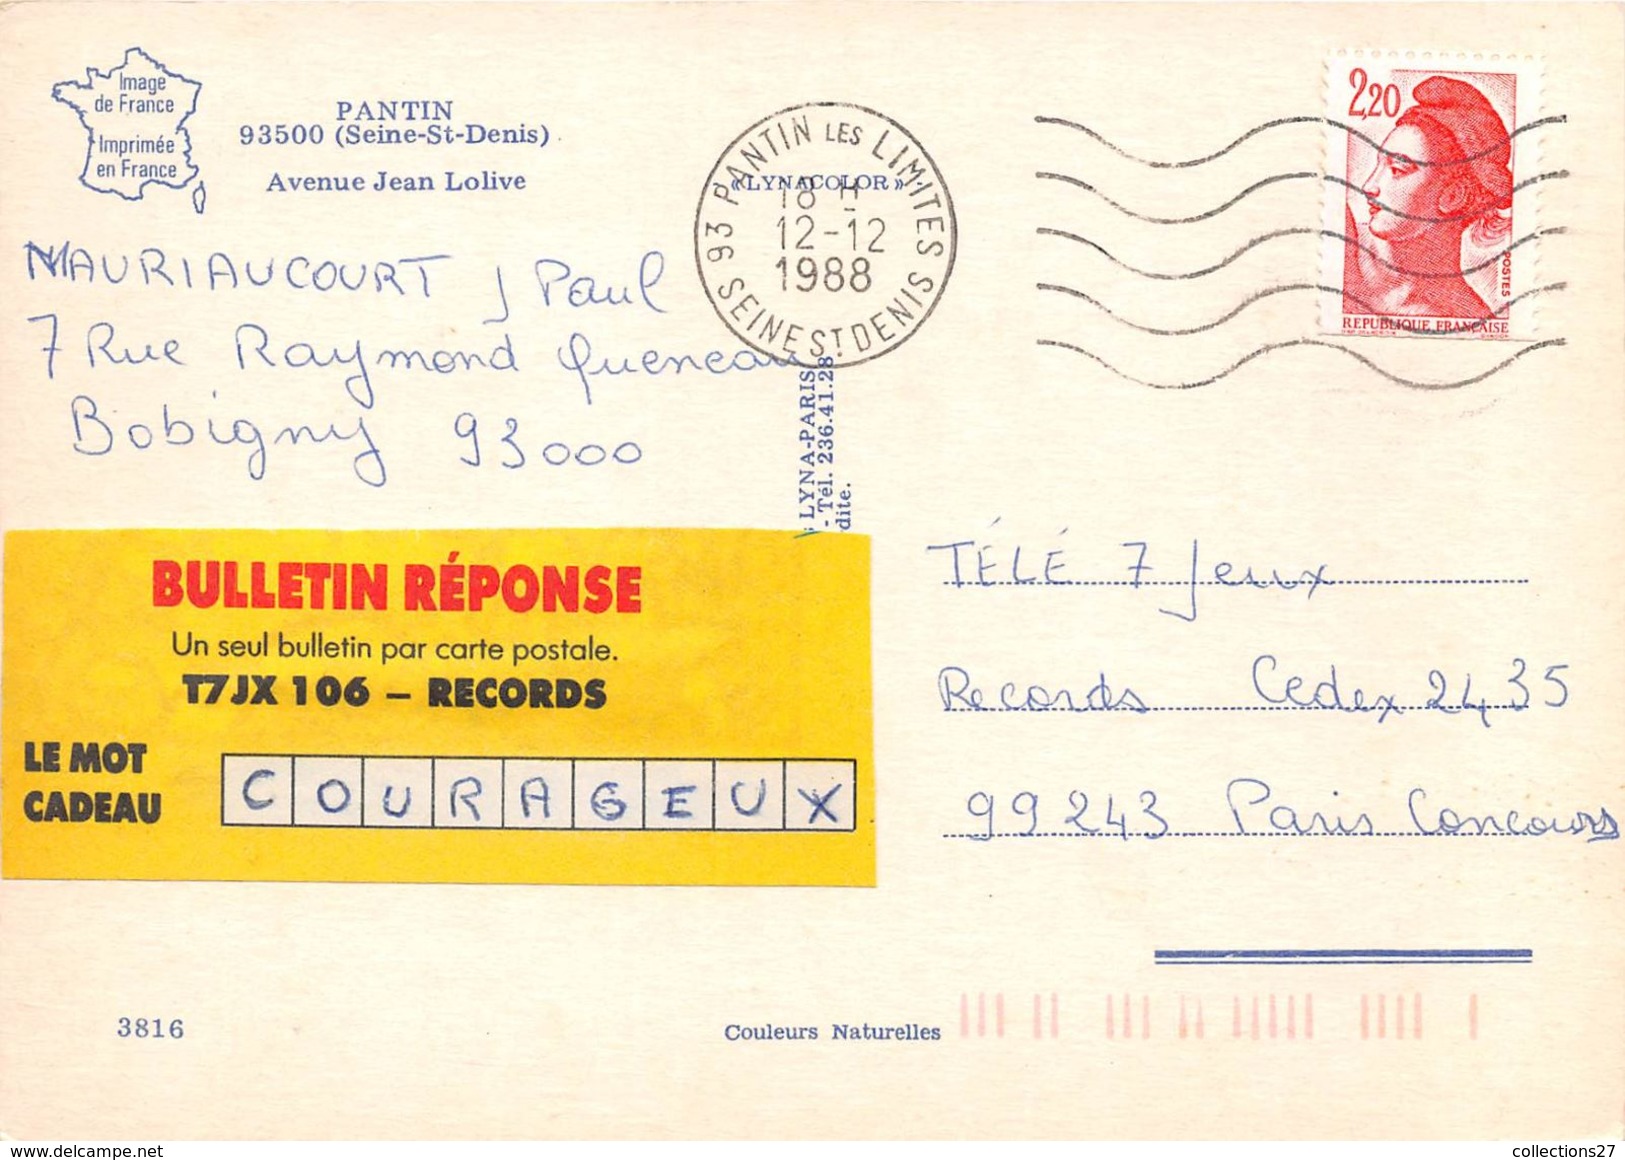 Image
de France
Imprimée
en France
PANTIN
93500 (Seine-St-Denis)
Avenue Jean Lolive
«LYNACOLOR»
93 PANTIN LES LIMITES
18 H
12-12
1988
SEINE ST DENIS
2,20
POSTES
REPUBLIQUE FRANÇAISE
MAURIAUCOURT J Paul
7 Rue Raymond Queneau
Bobigny 93000
LYNA-PARIS
- Tél. 236.41.28
dite.
BULLETIN RÉPONSE
Un seul bulletin par carte postale.
T7JX 106 – RECORDS
LE MOT
CADEAU
COURAGEUX
TÉLÉ 7 Jeux
Records Cedex 2435
99243 Paris Concours
3816
Couleurs Naturelles
collections27